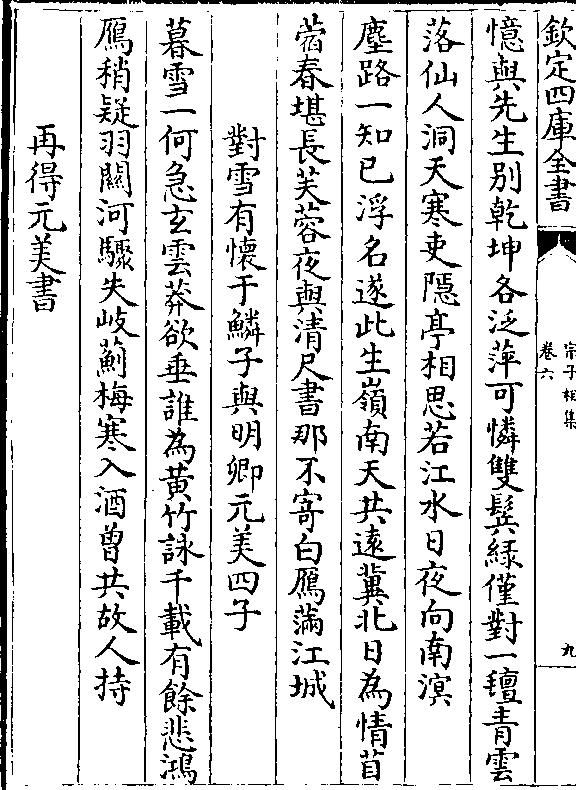 欽定四庫全書
宗子相集
卷六
九
憶與先生別乾坤各泛萍可憐雙鬂緑僅對一氊青雲
落仙人洞天寒吏隠亭相思若江水日夜向南溟
塵路一知已浮名遂此生嶺南天共遠冀北日為情苜
蓿春堪長芙蓉夜與清尺書那不寄白鴈滿江城
對雪有懷于鱗子與明卿元美四子
暮雪一何急玄雲莽欲垂誰為黄竹詠千載有餘悲鴻
鴈稍疑羽關河驟失岐薊梅寒入酒曽共故人持
再得元美書